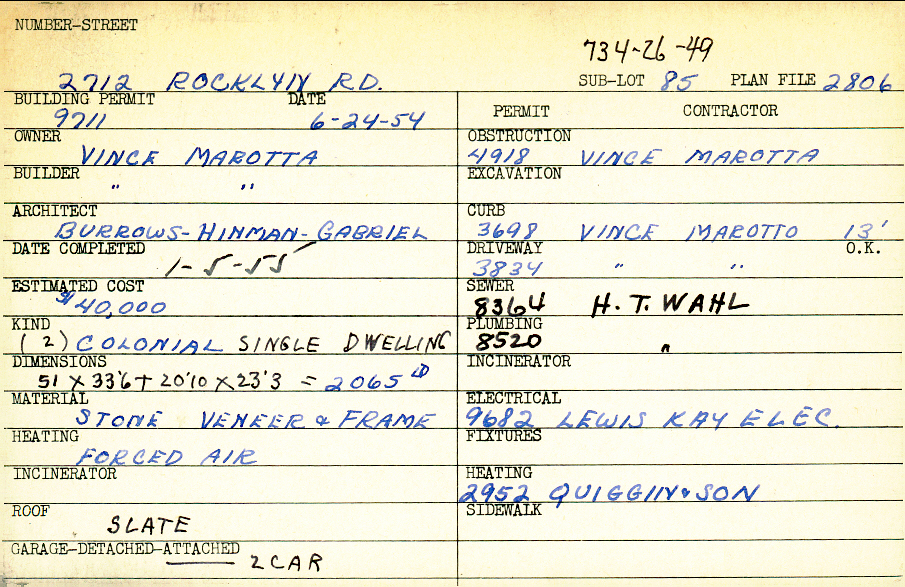 NUMBER-STREET
734-26-49
2712 ROCKLYN RD.
SUB-LOT 85 PLAN FILE 2806
BUILDING PERMIT DATE
9711 6-24-54
OWNER
VINCE MAROTTA
BUILDER
" "
ARCHITECT
BURROWS-HINMAN-GABRIEL
DATE COMPLETED
1-5-55
ESTIMATED COST
$40,000
KIND
(2) COLONIAL SINGLE DWELLING
DIMENSIONS
51 X 33'6 + 20'10 X 23'3 = 2065
MATERIAL
STONE VENEER & FRAME
HEATING
FORCED AIR
INCINERATOR
ROOF
SLATE
GARAGE-DETACHED-ATTACHED
2 CAR
PERMIT CONTRACTOR
OBSTRUCTION
4918 VINCE MAROTTA
EXCAVATION
CURB
3698 VINCE MAROTTO 13'
DRIVEWAY O.K.
3834 " "
SEWER
8364 H. T. WAHL
PLUMBING
8520 "
INCINERATOR
ELECTRICAL
9682 LEWIS KAY ELEC.
FIXTURES
HEATING
2952 QUIGGIN & SON
SIDEWALK